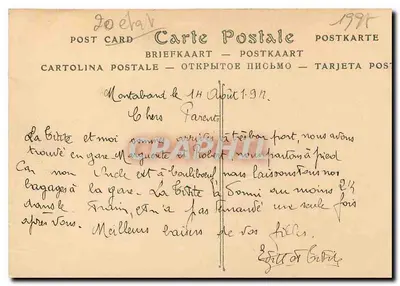 20 etat
1995
POST CARD Carte Postale POSTKARTE
BRIEFKAART — POSTKAART
CARTOLINA POSTALE — ОТКРЫТОЕ ПИСЬМО — TARJETA POST
le 14 Août
Chers Parents
La Titite et moi sommes arrivées à très bon port, nous avons
trouvé en gare Marguerite et Robert nous partons à pied
Car mon Oncle est à mais laisserons tous nos
bagages à la gare. La Titite à dormi au moins 2h
dans le Train, et n'a pas demandé une seule fois
après vous. Meilleurs baisers de vos filles.
et Titite